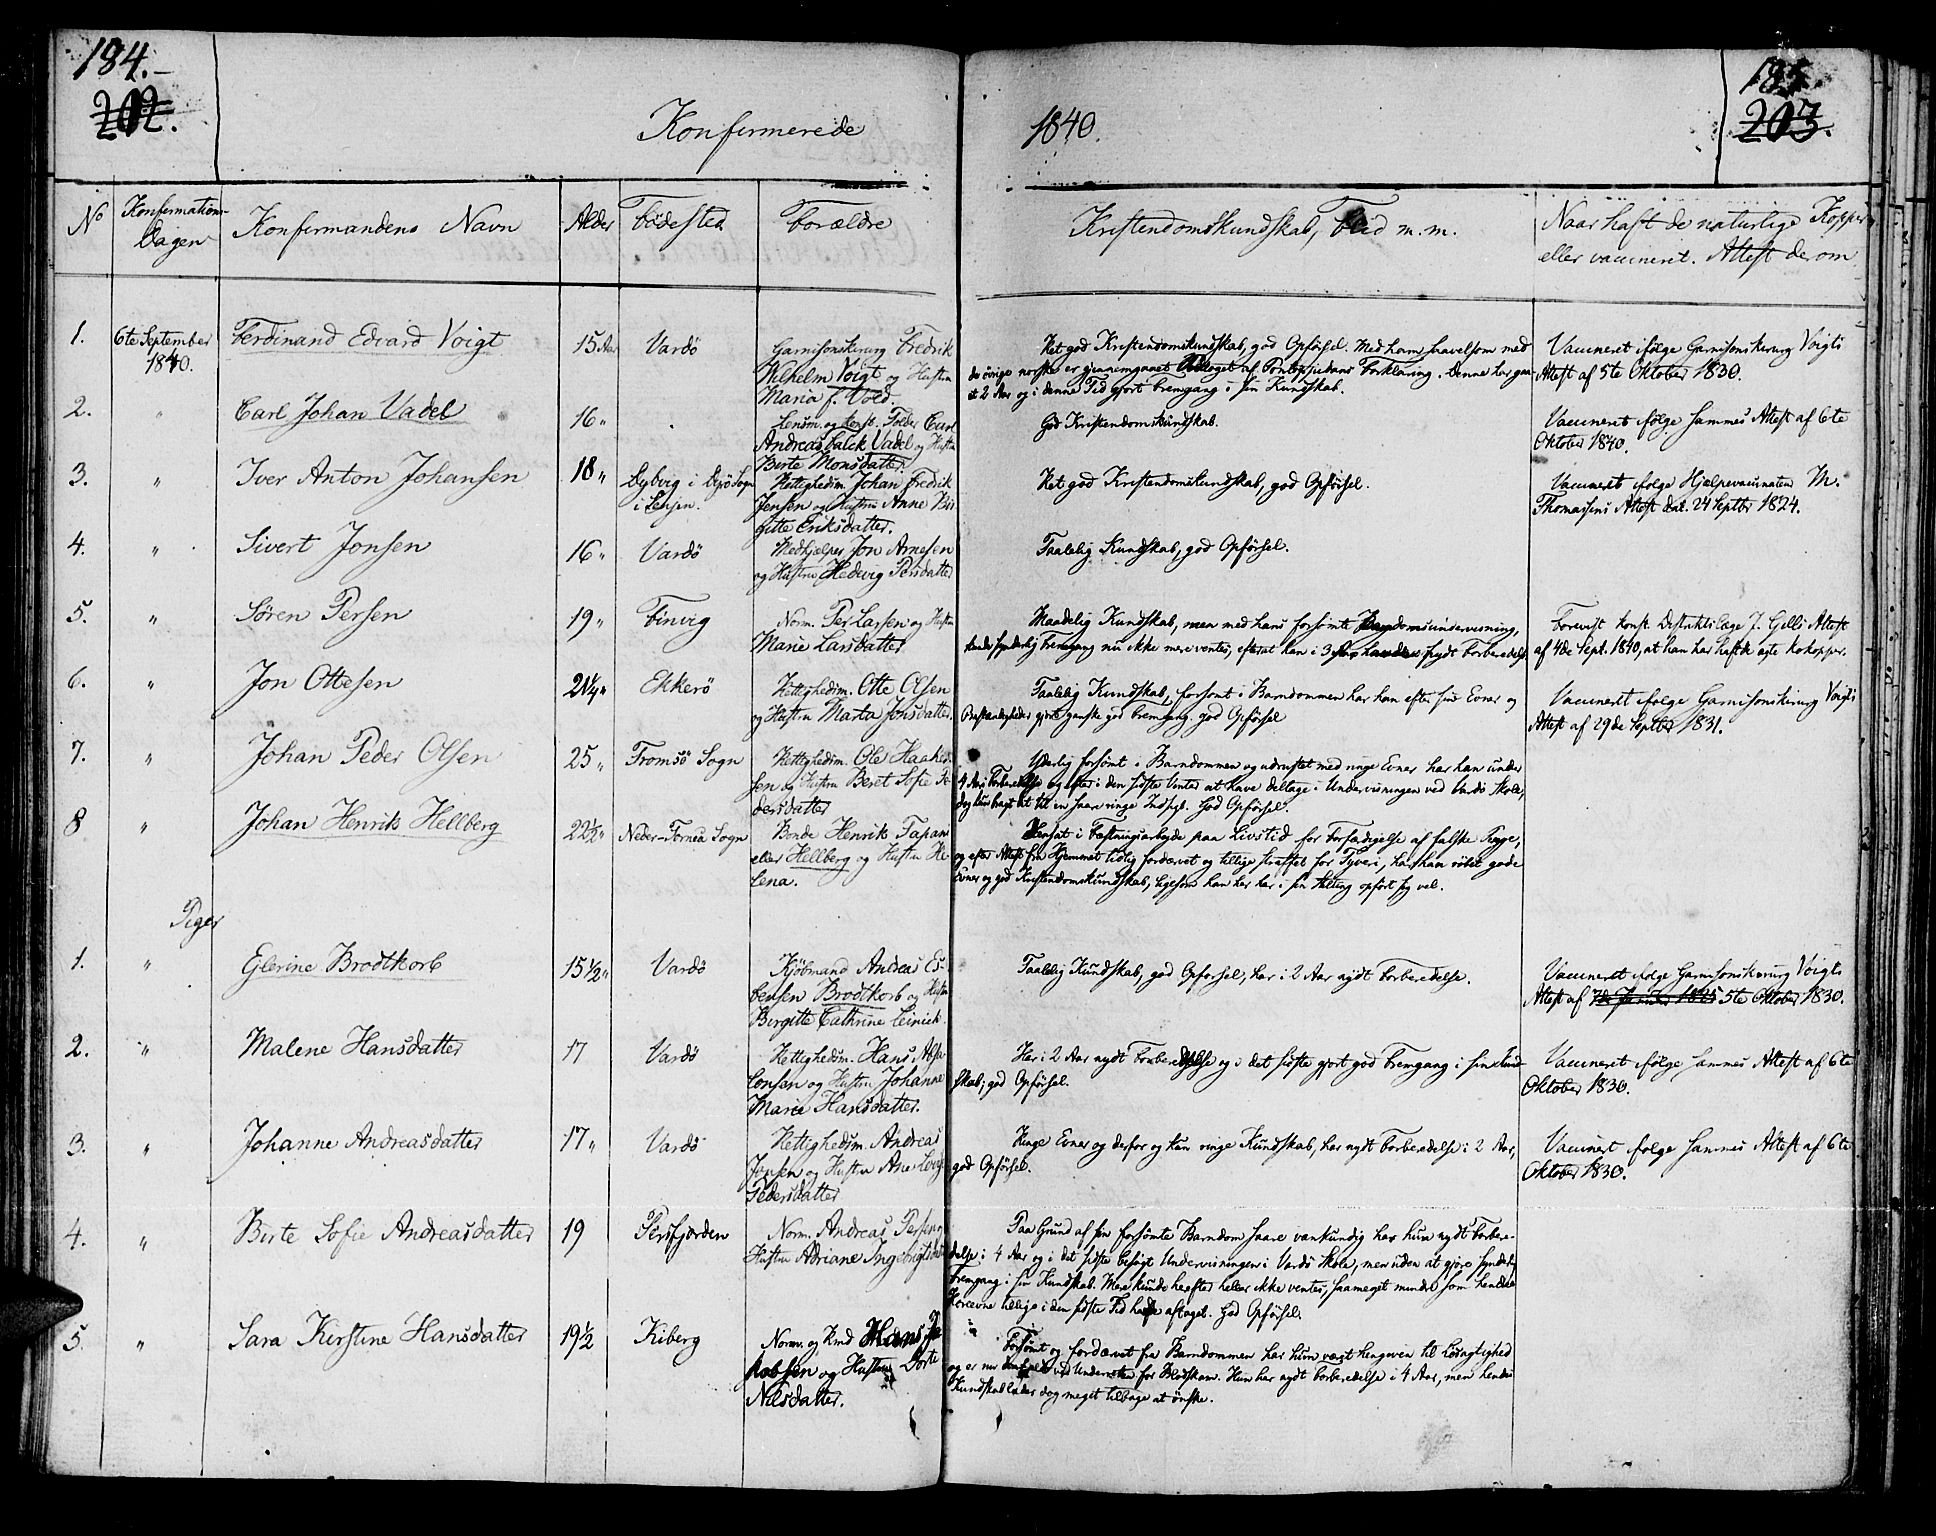 184.
202.
Konfirmerede
1840.
185.
203.
No
Konfirmations-
Dagen
Konfirmandens Navn
Alder
Födested
Forældre
Kristendomskundskab, Flid m.m.
Naar haft de naturlige Kopper
eller vaccineret. Attest derom
1. 6te September
1840.
Ferdinand Edvard Voigt
15 Aar
Vardö
Garnisonskirurg Fredrik
Wilhelm Voigt og Hustru
Maria f. Vold.
Ret god Kristendomskundskab, god Opförsel. Med ham saavelsom med
de övrige norske er gjennemgaaet Udtoget af Pontoppidans Forklaring. Denne har gaaet
i 2 Aar og i denne Tid gjort Fremgang i sin Kundskab.
Vaccineret ifölge Garnisonskirurg Voigts
Attest af 5te Oktober 1830.
2. "
Carl Johan Vadel
16 "
Lensm. og Carl
Andreas Falck Vadel og Hustru
Birte Monsdatter.
God Kristendomskundskab.
Vaccineret ifölge sammes Attest af 6te
Oktober 1840.
3. "
Iver Anton Johansen
18 "
Dybvig i Dyrö Sogn
i Senjen.
Rettighedsm. Johan Fredrik
Jensen og Hustru Anne Bir
gitte Eriksdatter.
Ret god Kristendomskundskab, god Opförsel.
Vaccineret ifölge Hjælpevaccinatör M.
Thomassens Attest dat. 24 Septbr 1824.
4. "
Sivert Jonsen
16 "
Vardö
Medhjelper Jon Arnesen
og Hustru Hedevig Persdatter
Taalelig Kundskab, god Opförsel.
5. "
Sören Persen
19 "
Finvig
Norm. Per Larsen og Hustru
Marie Larsdatter
Maadelig Kundskab, men med hans forsömte Barndomsundervisning,
kunde synderlig Fremgang nu ikke mere ventes, efterat han i 3 Aar havde nydt Forberedelse
Forevist konst. Distriktslæge J. Gells Attest
af 4de Sept. 1840, at han har haft de ægte Kokopper.
6. "
Jon Ottesen
21¼ "
Ekkerö
Rettighedsm. Otte Olsen
og Hustru Marta Jonsdatter.
Taalelig Kundskab, forsömt i Barndommen har han efter sine Evner og
Omstændigheder gjort ganske god Fremgang. god Opförsel
Vaccineret ifölge Garnisonskirurg Voigts
Attest af 29de Septbr 1831.
7. "
Johan Peder Olsen
25 "
Tromsö Sogn
Rettighedsm. Ole Haaken
sen og Hustru Beret Sofie Pe
dersdatter
Yderlig forsömt i Barndommen og udrustet med ringe Evner har han under
4 Aars Forberedelse og efter i den sidste Vinter at have deltage i Undervisningen ved Vardö Skole,
dog kun bragt det til en saare ringe Indsigt. God Opförsel.
8 "
Johan Henrik Hellberg
22½ "
Neder-Torneå Sogn
Bonde Henrik Tapani
eller Hellberg og Hustru He
lena.
Hensat i Fæstningsarbejde paa Livstid for Forfærdigelse af falske Penge,
og efter Attest fra Hjemmet tidlig fordærvet og tillige straffet for Tyveri, har han viist gode
Evner og god Kristendomskundskab, ligesom han har her i sin Stilling opfört sig vel.
Piger
1. "
Elerine Brodtkorb
15½ "
Vardö
Kjöbmand Andreas Es-
bensen Brodtkorb og Hustru
Birgitte Cathrine Leinick.
Taalelig Kundskab, god Opförsel, har i 2 Aar nydt Forberedelse.
Vaccineret ifölge Garnisonskirurg Voigts
Attest af 7de Januar 1825 5te Oktober 1830.
2. "
Malene Hansdatter
17
Vardö
Rettighedsm. Hans Absa-
lonsen og Hustru Johanne
Marie Hansdatter.
Har i 2 Aar nydt Forberedelse og i det sidste gjort god Fremgang i sin Kund
skab; god Opförsel.
Vaccineret ifölge sammes Attest af 6te
Oktober 1830.
3. "
Johanne Andreasdatter
17 "
Vardö
Rettighedsm. Andreas
Jonsen og Hustru Ane Lovise
Pedersdatter
Ringe Evner og derfor og kun ringe Kundskab, har nydt Forberedelse i 2 Aar,
god Opförsel.
Vaccinert ifölge sammes Attest af 6te
Oktober 1830.
4. "
Birte Sofie Andreasdatter
19
Persfjorden
Norm. Andreas Persen og
Hustru Adriane Ingebrigtsdatter
Paa Grund af sin forsömte Barndom saare vankundig har hun nydt Forbere-
delse i 4 Aar og i det sidste besögt Undervisningen i Vardö Skole, men uden at gjöre synderlig
Fremgang i sin Kundskab. Mere kunde herefter heller ikke ventes, saameget mindre som hendes
Höreevne tillige i den sidste Tid havde aftaget. God Opförsel.
5. "
Sara Kirstine Hansdatter
19½
Kiberg
Norm. og Kvæn Hans Ja
kobsen og Hustru Dorte
Nilsdatter.
Forsömt og fordærvet fra Barndommen har hun været hengiven til Lösagtighed
og er nu ved Underretten for Blodskam. Hun har nydt Forberedelse i 4 Aar, men hendes
Kundskab lader dog meget tilbage at önske.